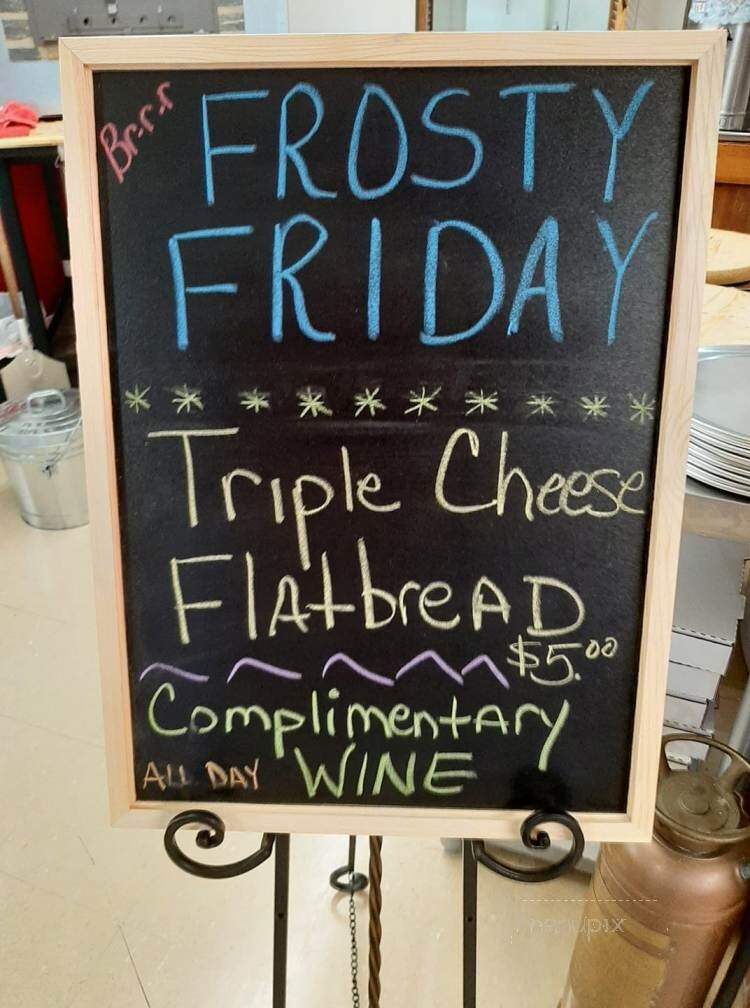 Br.r.r
FROSTY
FRIDAY
* * * * * * * * * *
Triple Cheese
FlAtbreAD
$5.00
ComplimentAry
All DAY WINE
menupix